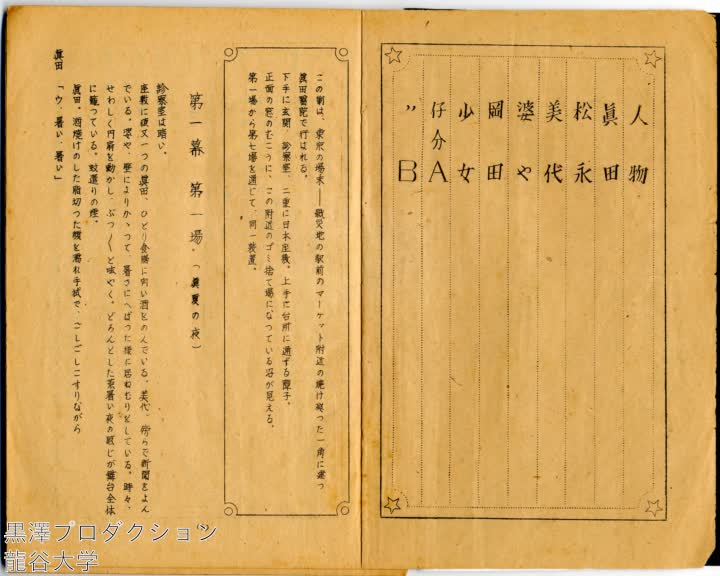 人物
眞田
松永
美代
婆や
岡田
少女
仔分A
〃B
この劇は、東京の場末――戰災地の駅前のマーケット附近の燒け殘った一角に建つ
眞田醫院で行はれる。
下手に玄関、診察室、二重に日本座敷。上手に台所に通ずる障子。
正面の窓のむこうに、この附近のゴミ捨て場になっている沼が見える。
第一場から第七場を通じて、同一装置。
第一幕 第一場。(眞夏の夜)
診察室は暗い。
座敷に夜叉一つの眞田、ひとり食膳に向い酒をのんでいる。美代、傍らで新聞をよん
でいる。婆や、壁によりかゝって、暑さにへばった様に居ねむりをしている。時々、
せわしく円扇を動かし、ぶつ〱と呟やく。どろんとした蒸暑い夜の感じが舞台全体
に籠っている。蚊遣りの煙。
眞田、酒燒けのした脂切った顔を濡れ手拭で、ごしごしこすりながら
眞田 「ウ、暑い、暑い」
黒澤プロダクション
龍谷大学